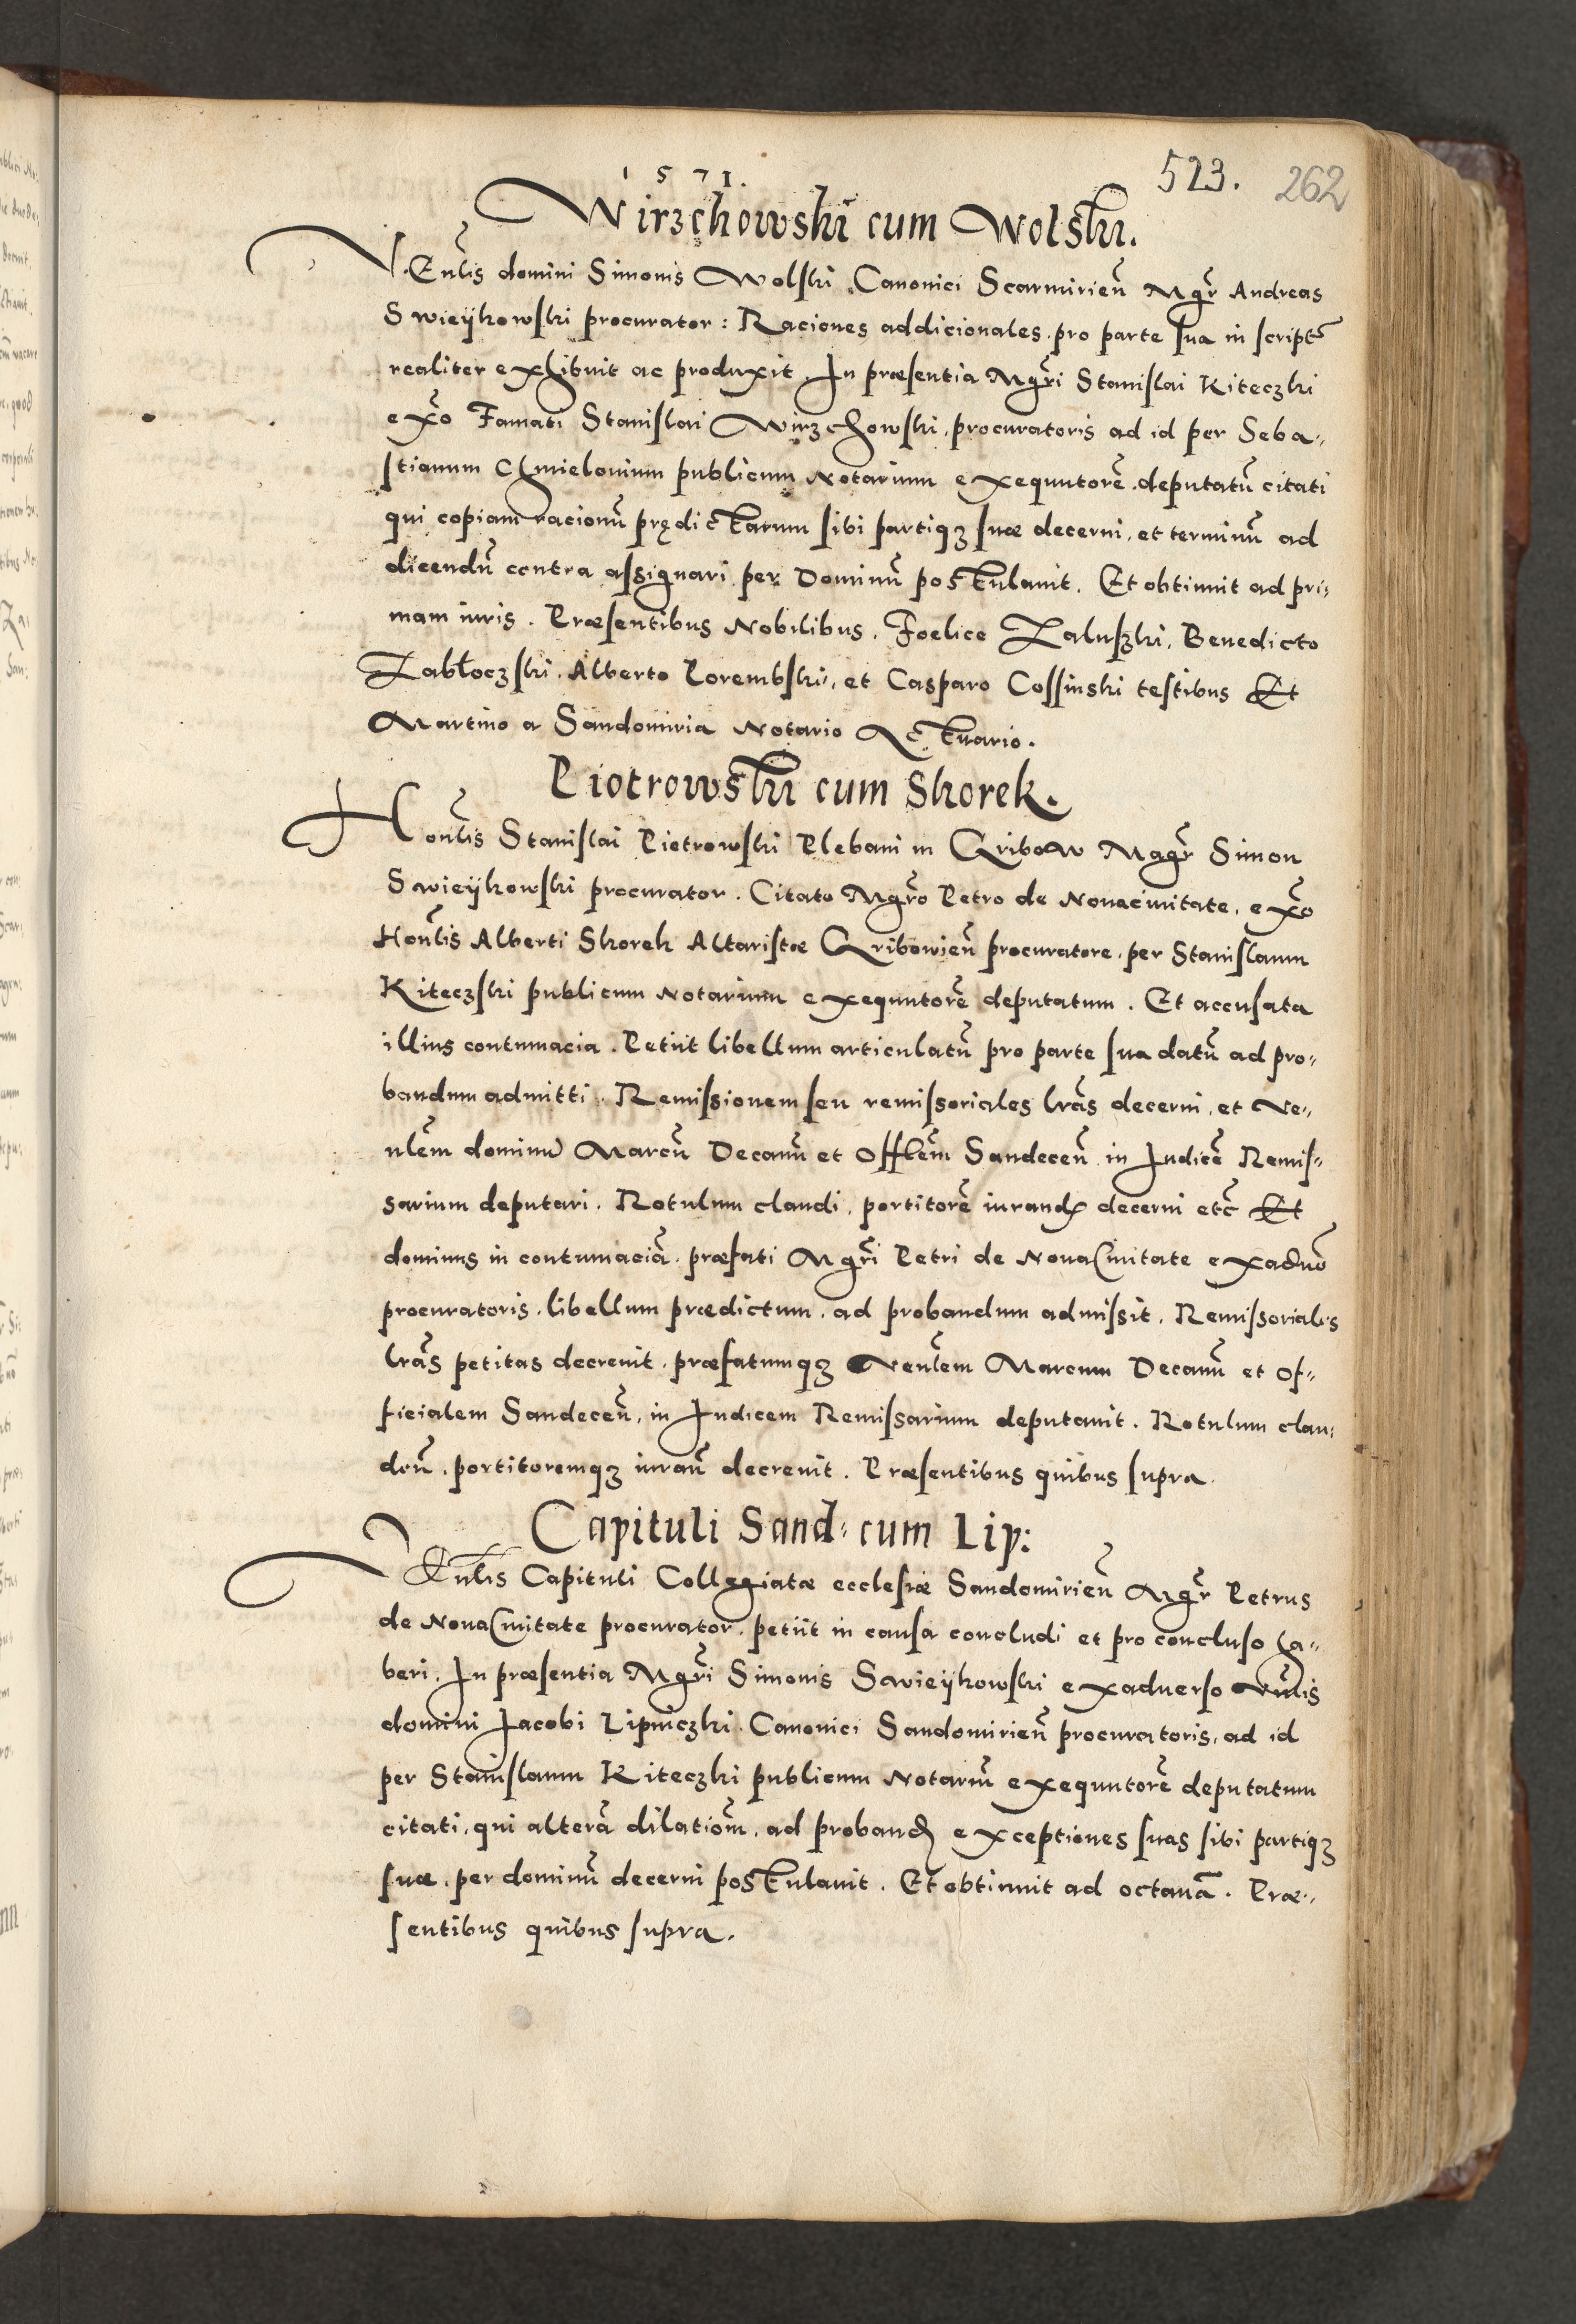 1571.
523. 262
Wirzchowski cum Wolski.
VEnlis domini Simonis Wolski. Canonici Scarmirień Mgr̃ Andreas
Swieÿkowski procurator: Raciones addicionales. pro parte sua in script̃
realiter exhibuit ac produxit. In præsentia Mgr̃i Stanislai Kiteczki
ex͂o Famati Stanislai Wirzchowski. procuratoris ad id per Seba„
stianum Chmielouium publicum Notarium exequutorẽ. deputatũ citati
qui copiam racionũ prędictarum sibi partiqꝫ suæ decerni, et terminũ ad
dicendũ contra assignari per Dominũ postulauit. Et obtinuit ad pri„
mam iuris. Præsentibus Nobilibus. Foelice Zaluszki, Benedicto
Zabłoczski. Alberto Porembski, et Casparo Cossinski testibus Et
Martino a Sandomiria Notario Actuario.
Piotrowski cum Skorek.
Honlis Stanislai Pietrowski Plebani in Gribow Magr̃ Simon
Swieÿkowski procurator. Citato Mgr̃o Petro de Nouaciuitate, ex͂o
Honlis Alberti Skorek Altaristæ Gribowień procuratore. per Stanislaum
Kiteczski publicum Notarium exequutorẽ deputatum. Et accusata
illius contumacia. Petiit libellum articulatũ pro parte sua datũ ad pro„
bandum admitti. Remissionem seu remissoriales lrãs decerni, et Ve„
nlem dominũ Marcũ Decanũ et Offlem Sandeceñ in Iudicẽ Remis„
sarium deputari. Rotulum claudi, portitorẽ iurand decerni etc̃ Et
dominus in contumaciã. præfati Mgr̃i Petri de NouaCiuitate exaduõ
procuratoris. libellum prædictum. ad probandum admissit. Remissoriales
lrãs petitas decreuit. præfatumqꝫ Venlem Marcum Decanũ et Of„
ficialem Sandeceñ, in Iudicem Remissarium deputauit. Rotulum clau„
deñ. portitoremqꝫ iurañ decreuit. Præsentibus quibus supra.
Capituli Sand: cum Lip:
VEnlis Capituli Collegiatæ ecclesiæ Sandomirień Mgr̃ Petrus
de NouaCiuitate procurator. petiit in causa concludi et pro concluso ha„
beri. In præsentia Mgr̃i Simonis Swieÿkowski exaduerso Vnlis
domini Jacobi Lipniczki. Canonici Sandomirień procuratoris, ad id
per Stanislaum Kiteczki publicum Notariũ exequutorẽ deputatum
citati, qui alterã dilationẽ. ad proband exceptiones suas sibi partiqꝫ
suæ. per dominũ decerni postulauit. Et obtinuit ad octauã. Præ„
sentibus quibus supra.